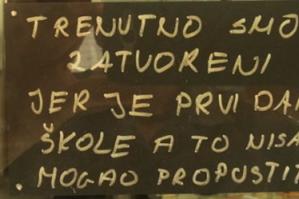 TRENUTNO SMO
ZATVORENI
JER JE PRVI DAN
ŠKOLE A TO NISA
MOGAO PROPUSTIT